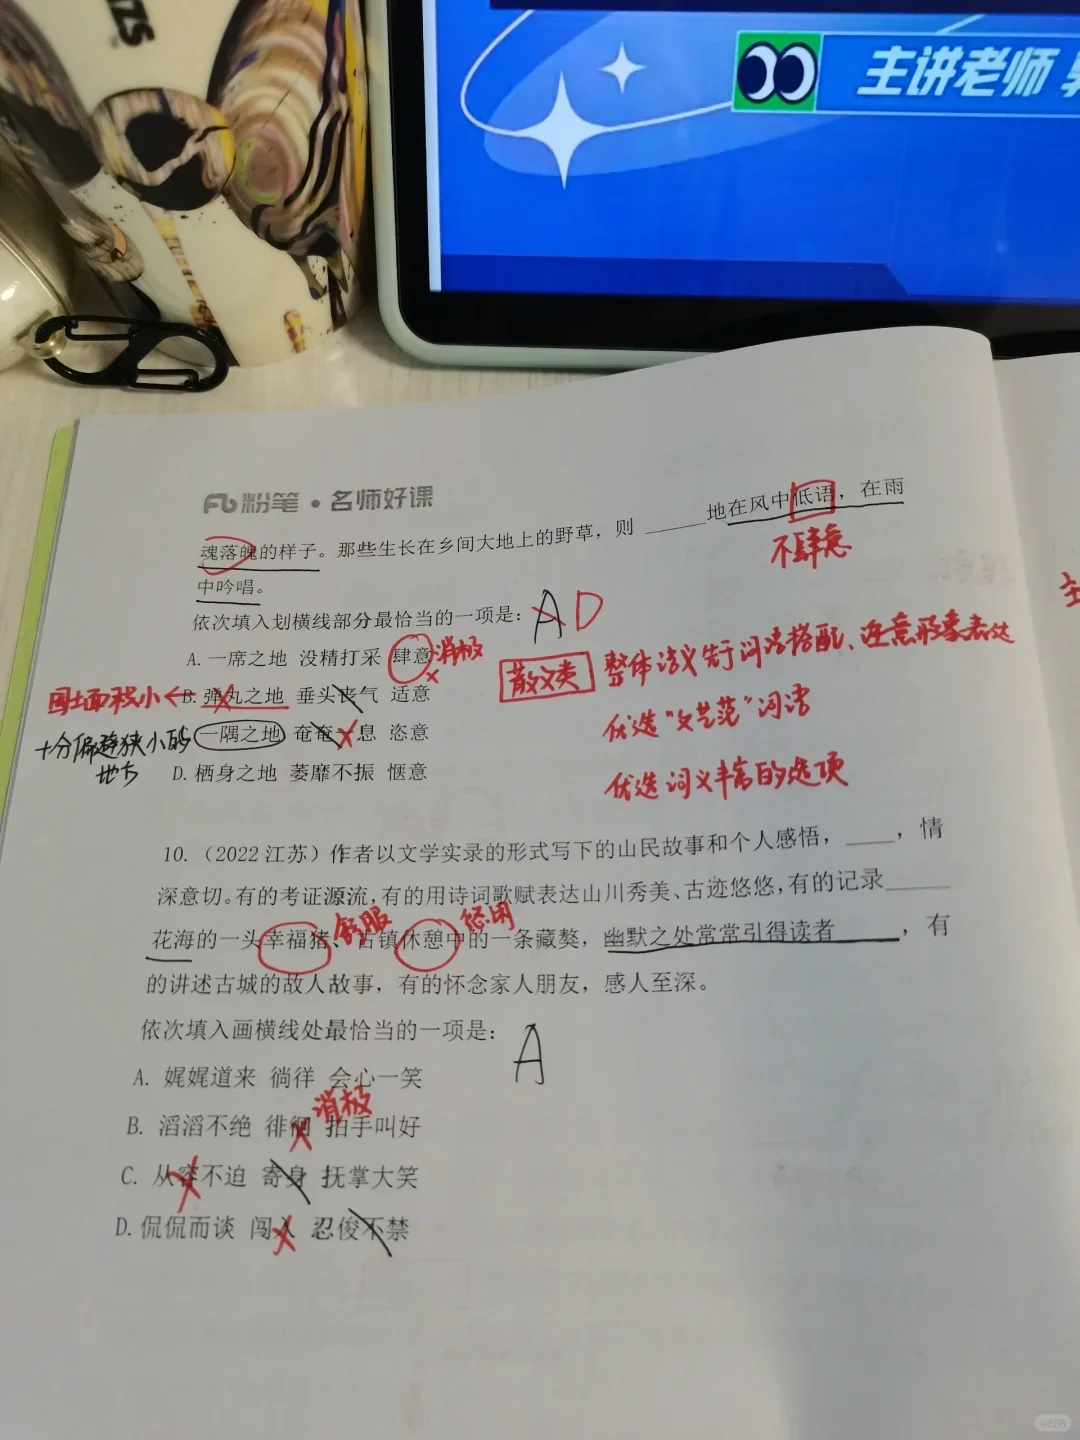 主讲老师
粉笔·名师好课
魂落魄的样子。那些生长在乡间大地上的野草，则______地在风中低语，在雨
不肆意
中吟唱。
依次填入划横线部分最恰当的一项是：
A D
A. 一席之地 没精打采 肆意
消极
B. 弹丸之地 垂头丧气 适意
国土面积小←
一隅之地 奄奄 息 恣意
十分偏僻狭小的
地方
D. 栖身之地 萎靡不振 惬意
散文类 整体语义先行词语搭配、注意形象表达
优选“文艺范”词语
优选词义丰富的选项
10.（2022江苏）作者以文学实录的形式写下的山民故事和个人感悟，____，情
深意切。有的考证源流，有的用诗词歌赋表达山川秀美、古迹悠悠，有的记录_____
舒服 悠闲
花海的一头幸福猪、古镇休憩中的一条藏獒，幽默之处常常引得读者_____，有
的讲述古城的故人故事，有的怀念家人朋友，感人至深。
依次填入画横线处最恰当的一项是：
A
A. 娓娓道来 徜徉 会心一笑
消极
B. 滔滔不绝 徘徊 拍手叫好
C. 从容不迫 寄身 抚掌大笑
D. 侃侃而谈 闯入 忍俊不禁